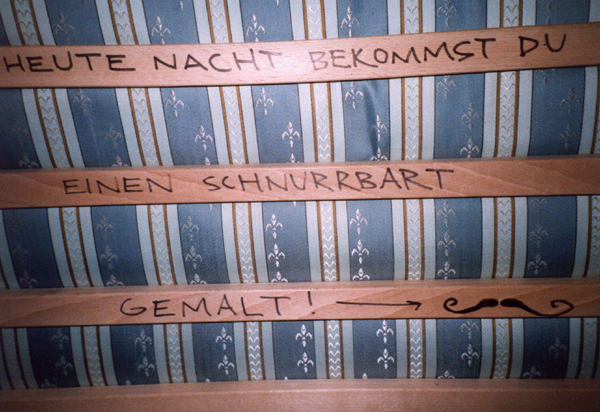 HEUTE NACHT BEKOMMST DU
EINEN SCHNURRBART
GEMALT! →